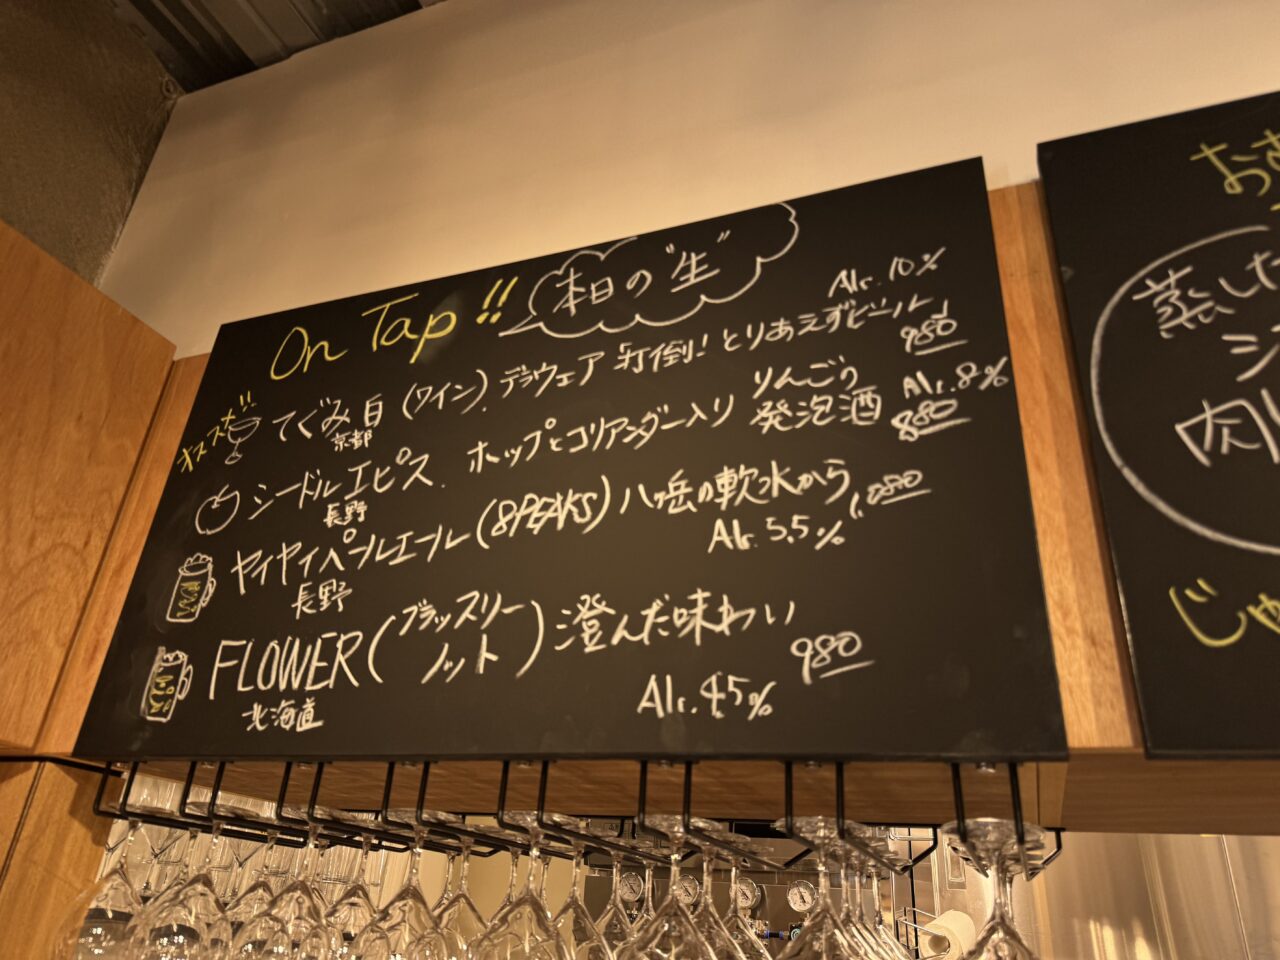 On Tap!! 本日の"生"
オススメ!! てぐみ白(ワイン). デラウェア 「打倒! とりあえずビール」 Alc. 10%
京都 980
シードルエピス. ホップとコリアンダー入り りんごの発泡酒 Alc. 8%
長野 880
ヤイヤイペールエール(8PEAKS) 八ヶ岳の軟水から
長野 Alc. 5.5% 1,080
FLOWER(ブラッスリーノット) 澄んだ味わい
北海道 Alc. 4.5% 980
蒸した
シ
肉
じゃ